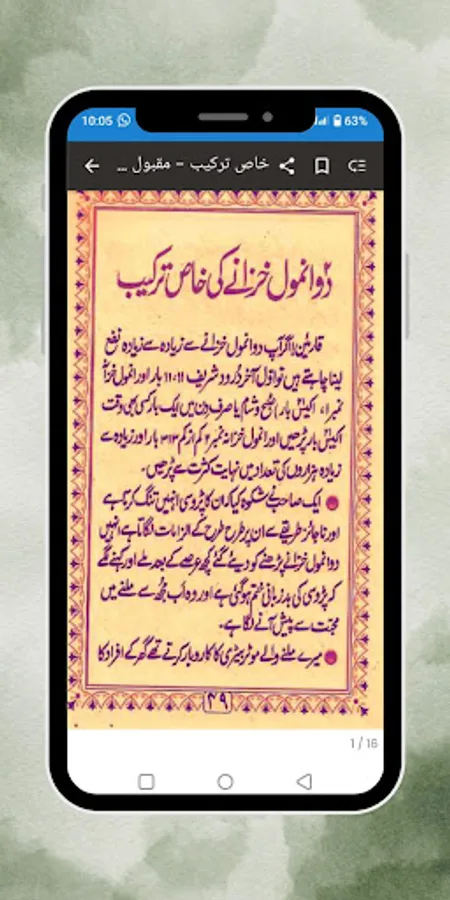 10:05
63%
خاص ترکیب – مقبول ...
دو انمول خزانے کی خاص ترکیب
قارئین! اگر آپ دو انمول خزانے سے زیادہ سے زیادہ نفع
لینا چاہتے ہیں تو اول آخر درود شریف ۱۱،۱۱ بار اور انمول خزانہ
نمبر ۱، اکیس بار (صبح و شام یا صرف دن میں ایک بار کسی بھی وقت
اکیس بار پڑھیں اور انمول خزانہ نمبر ۲ کم از کم ۳۱۳ بار اور زیادہ سے
زیادہ ہزاروں کی تعداد میں نہایت کثرت سے پڑھیں۔
ایک صاحب نے شکوہ کیا کہ ان کا پڑوسی انہیں تنگ کرتا ہے
اور ناجائز طریقے سے ان پر طرح طرح کے الزامات لگاتا ہے انہیں
دو انمول خزانے پڑھنے کو دیئے گئے کچھ عرصے کے بعد ملے اور کہنے لگے
کہ پڑوسی کی بدزبانی ختم ہوگئی ہے اور وہ اب مجھ سے ملنے میں
محبت سے پیش آنے لگا ہے۔
میرے ملنے والے موٹر بیٹری کا کاروبار کرتے تھے گھر کے افراد کا
۴۹
1 / 16